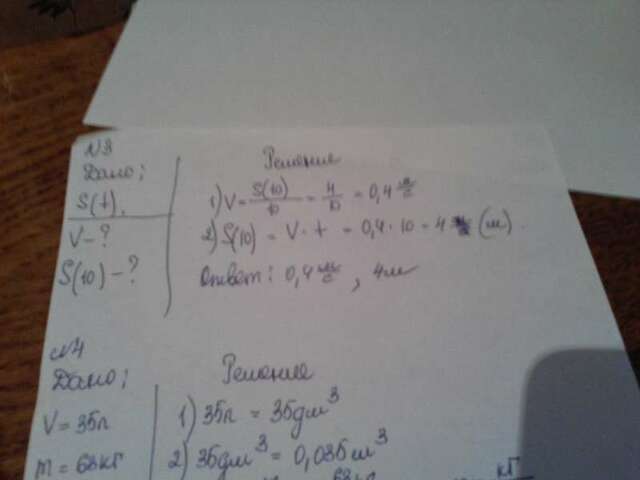 N3
Дано:
S(t).
V-?
S(10)-?
Решение
1) V = S(10)/10 = 4/10 = 0,4 м/с
2) S(10) = V · t = 0,4 · 10 = 4 (м).
Ответ: 0,4 м/с, 4м
N4
Дано:
V = 35л
m = 63кг
Решение
1) 35л = 35дм³
2) 35дм³ = 0,035м³
63кг
кг